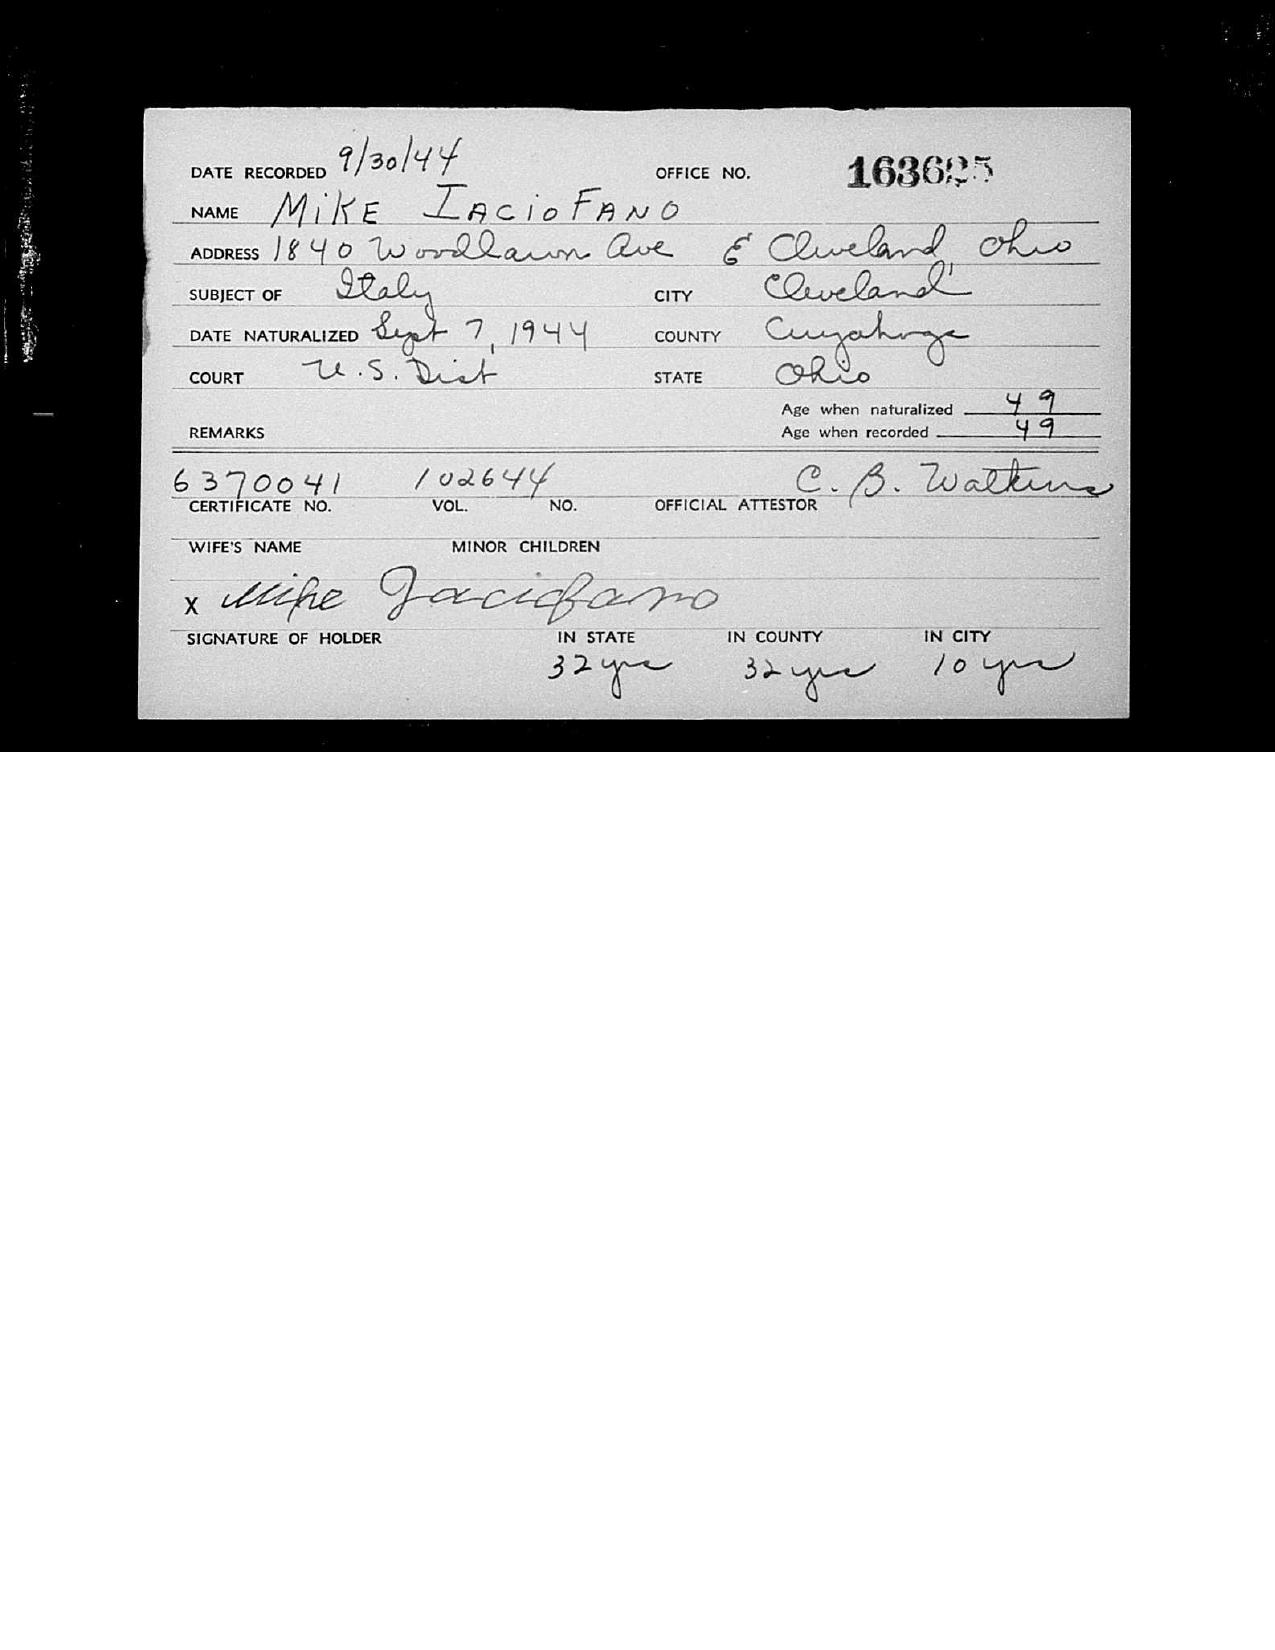 DATE RECORDED 9/30/44 OFFICE NO.
NAME MiKE IACioFANO
ADDRESS 1840 Woodlawn Ave E Cleveland, Ohio
SUBJECT OF Italy CITY Cleveland
DATE NATURALIZED Sept 7, 1944 COUNTY Cuyahoga
COURT U.S. Dist STATE Ohio
Age when naturalized 49
REMARKS Age when recorded 49
6370041 102644 C. B. Watkins
CERTIFICATE NO. VOL. NO. OFFICIAL ATTESTOR
WIFE'S NAME MINOR CHILDREN
X Mike Iaciofano
SIGNATURE OF HOLDER IN STATE IN COUNTY IN CITY
32 yrs 32 yrs 10 yrs